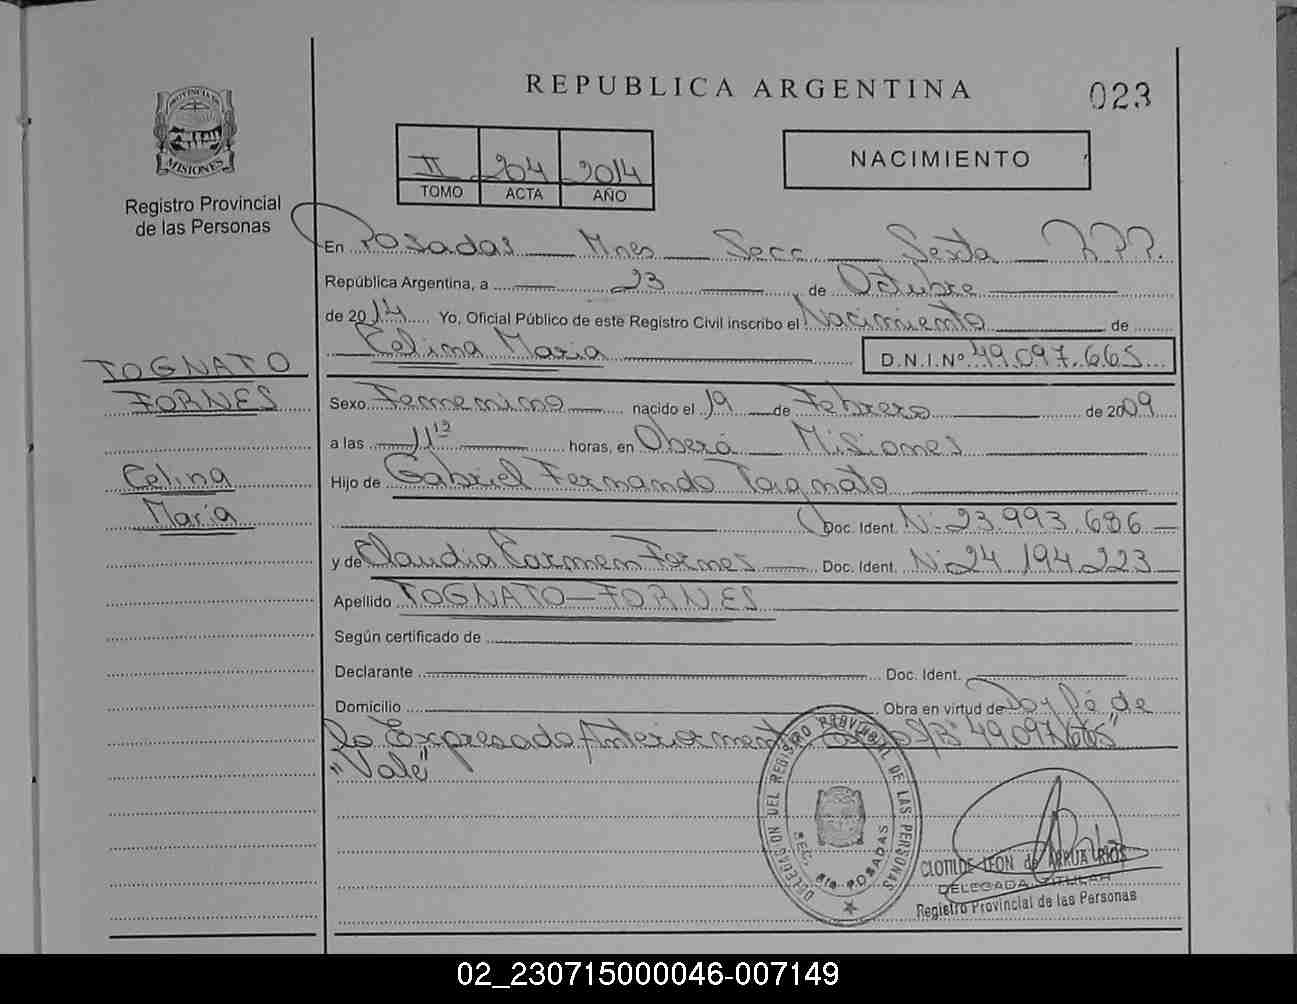 REPUBLICA ARGENTINA
023
PROVINCIA DE
MISIONES
Registro Provincial
de las Personas
II 204 2014
TOMO ACTA AÑO
NACIMIENTO
En Posadas Mnes Secc Sexta R.P.P.
República Argentina, a 23 de Octubre
de 2014 Yo, Oficial Público de este Registro Civil inscribo el Nacimiento de
Celina Maria D.N.I.Nº 49.097.665
TOGNATO
FORNES
Celina
María
Sexo Femenino nacido el 19 de Febrero de 2009
a las 11 horas, en Oberá Misiones
Hijo de Gabriel Fernando Tognato
Doc. Ident. Nº 23.993.686
y de Claudia Carmen Fornes Doc. Ident. Nº 24.194.223
Apellido TOGNATO-FORNES
Según certificado de
Declarante Doc. Ident.
Domicilio Obra en virtud de Doy fé de
lo Expresado Anteriormente S/R "49.097.665"
"Vale"
DELEGACION DEL REGISTRO PROVINCIAL DE LAS PERSONAS
SEC. 6ta POSADAS
CLOTILDE LEON de ARRUA RIOS
DELEGADA TITULAR
Registro Provincial de las Personas
02_230715000046-007149